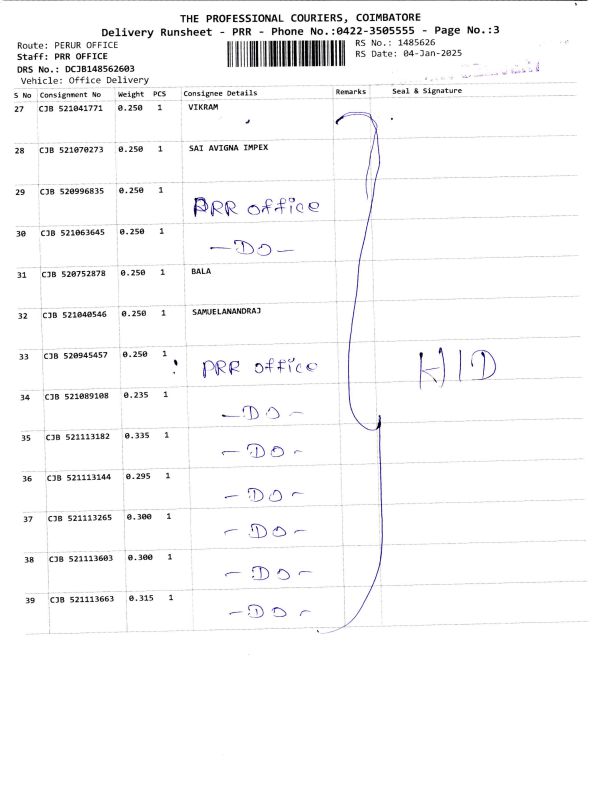 THE PROFESSIONAL COURIERS, COIMBATORE
Delivery Runsheet - PRR - Phone No.:0422-3505555 - Page No.:3
Route: PERUR OFFICE
RS No.: 1485626
Staff: PRR OFFICE
RS Date: 04-Jan-2025
DRS No.: DCJB148562603
Vehicle: Office Delivery
S No Consignment No Weight PCS Consignee Details Remarks Seal & Signature
27 CJB 521041771 0.250 1 VIKRAM
28 CJB 521070273 0.250 1 SAI AVIGNA IMPEX
29 CJB 520996835 0.250 1 PRR office
30 CJB 521063645 0.250 1 -DO-
31 CJB 520752878 0.250 1 BALA
32 CJB 521040546 0.250 1 SAMUELANANDRAJ
33 CJB 520945457 0.250 1 PRR office H/D
34 CJB 521089108 0.235 1 -DO-
35 CJB 521113182 0.335 1 -DO-
36 CJB 521113144 0.295 1 -DO-
37 CJB 521113265 0.300 1 -DO-
38 CJB 521113603 0.300 1 -DO-
39 CJB 521113663 0.315 1 -DO-